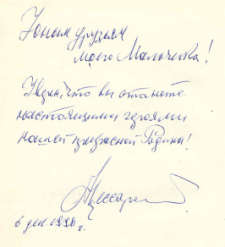 Юным друзьям
моего Мальчиша!
Уверен, что вы станете
настоящими героями
нашей прекрасной Родины!
6 дек
г.